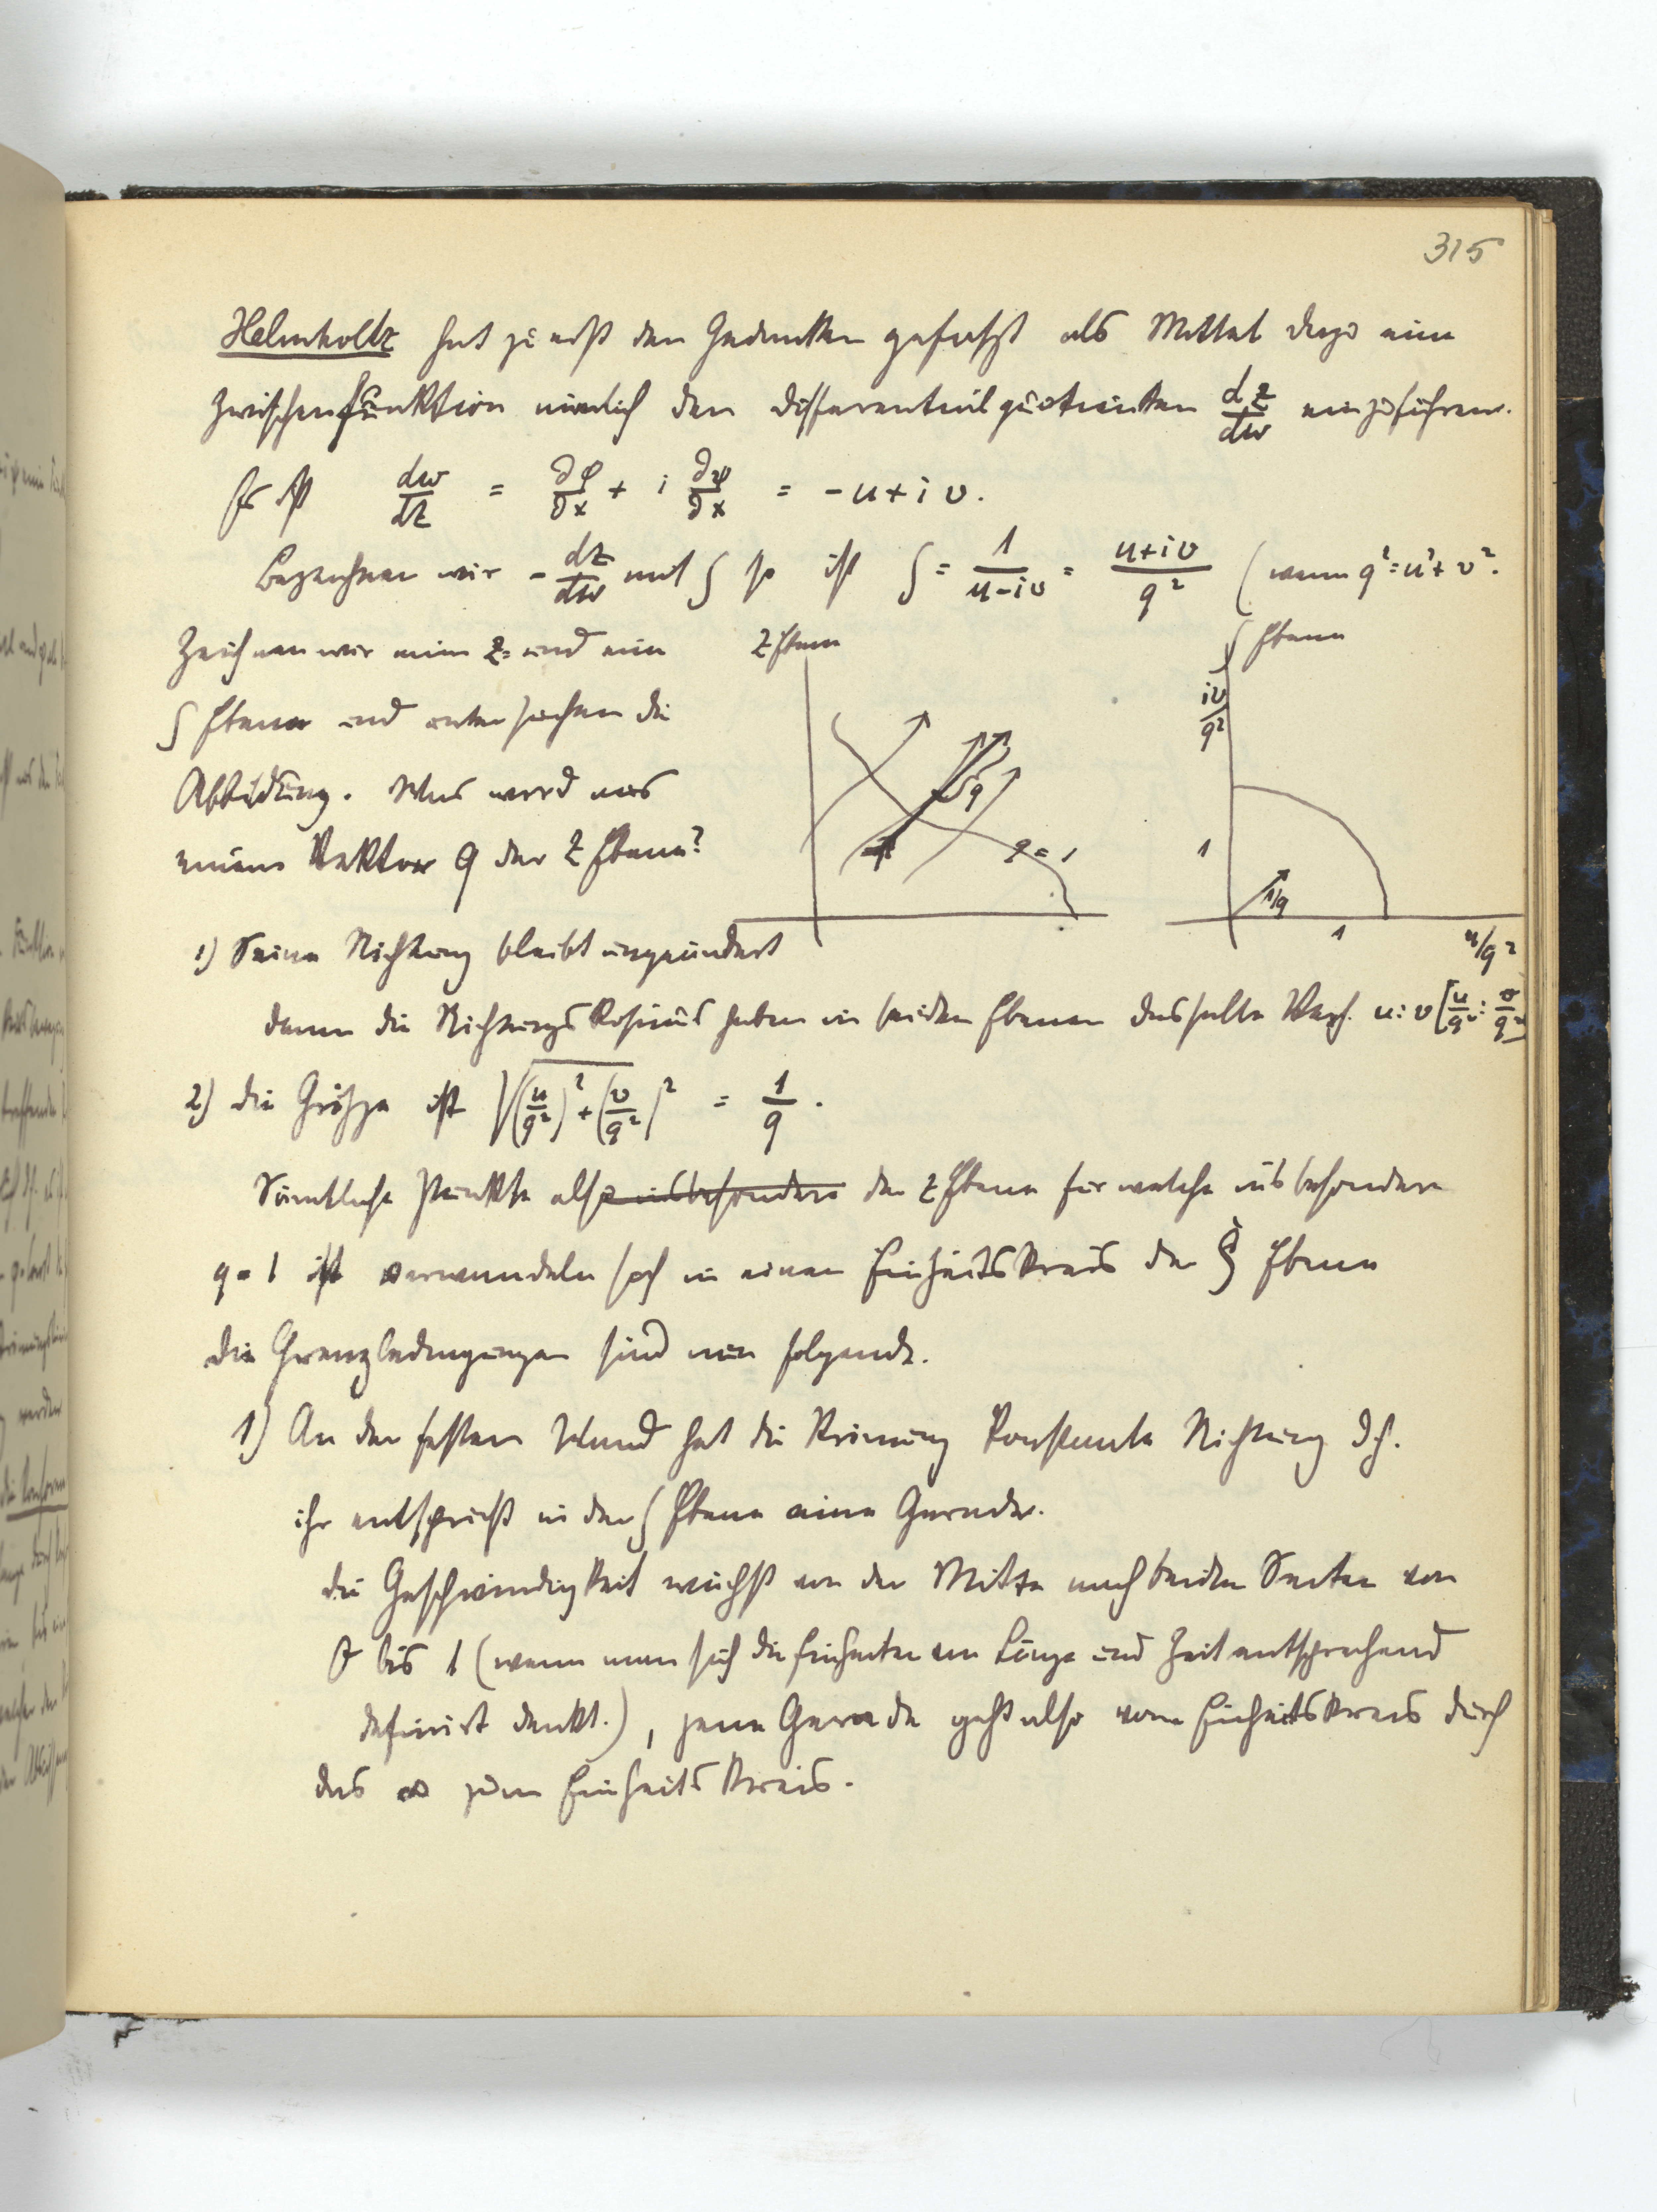 315
Helmholtz hat zuerst den Gedanken gefasst als Mittel dazu eine
Zwischenfunktion nämlich den Differentialquotienten dz/dw einzuführen.
Es ist dw/dz = ∂φ/∂x + i ∂ψ/∂x = -u + i v.
Bezeichnen wir - dz/dw mit ζ so ist ζ = 1/(u-iv) = (u+iv)/q² (wenn q² = u² + v².
Zeichnen wir eine z- und eine
ζ Ebene und untersuchen die
Abbildung. Was wird aus
einem Vektor q der z Ebene?
z Ebene
q
q = 1
ζ Ebene
iv/q²
1
1/q
1
u/q²
1) Seine Richtung bleibt ungeändert
denn die Richtungskosinus haben in beiden Ebenen dasselbe Verh. u:v [u/q² : v/q²]
2) die Größe ist √((u/q²)² + (v/q²)²) = 1/q.
Sämtliche Punkte also insbesondere der z Ebene für welche insbesondere
q = 1 ist verwandeln sich in einen Einheitskreis der ζ Ebene
die Grenzbedingungen sind nun folgende.
1) An der festen Wand hat die Strömung konstante Richtung d.h.
ihr entspricht in der ζ Ebene eine Gerade.
die Geschwindigkeit wächst von der Mitte nach beiden Seiten von
0 bis 1 (wenn man sich die Einheiten von Länge und Zeit entsprechend
definiert denkt.), jene Gerade geht also vom Einheitskreis durch
das ∞ zum Einheitskreis.